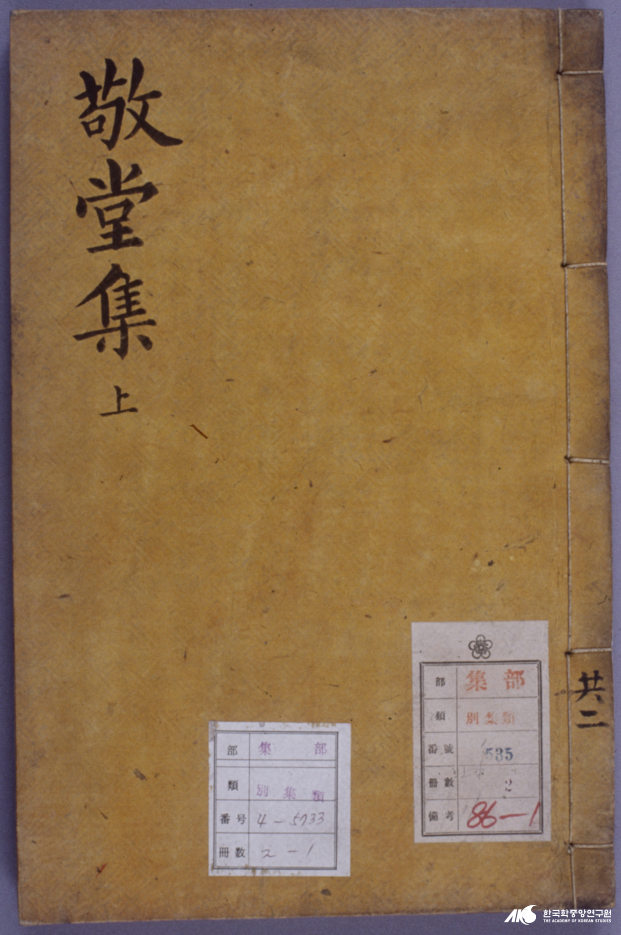 敬堂集 上
共二
部 集部
類 別集類
番號 535
冊數 2
備考 86-1
部 集部
類 別集類
番号 4-5733
冊数 2-1
한국학중앙연구원
THE ACADEMY OF KOREAN STUDIES